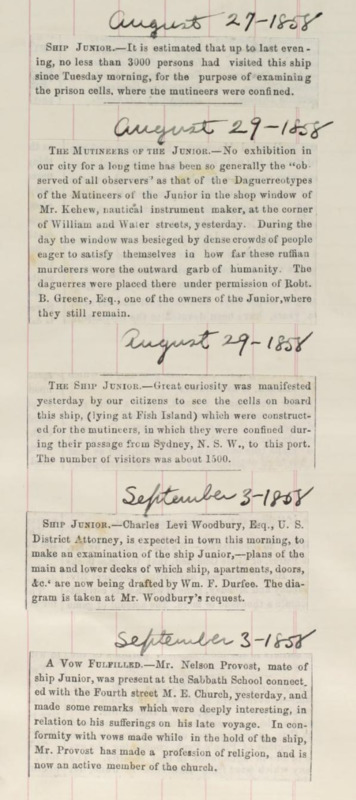 August 27-1858
SHIP JUNIOR.—It is estimated that up to last even-
ing, no less than 3000 persons had visited this ship
since Tuesday morning, for the purpose of examining
the prison cells, where the mutineers were confined.
August 29-1858
THE MUTINEERS OF THE JUNIOR.—No exhibition in
our city for a long time has been so generally the "ob
served of all observers' as that of the Daguerreotypes
of the Mutineers of the Junior in the shop window of
Mr. Kehew, nautical instrument maker, at the corner
of William and Water streets, yesterday. During the
day the window was besieged by dense crowds of people
eager to satisfy themselves in how far these ruffian
murderers wore the outward garb of humanity. The
daguerres were placed there under permission of Robt.
B. Greene, Esq., one of the owners of the Junior, where
they still remain.
August 29-1858
THE SHIP JUNIOR.—Great curiosity was manifested
yesterday by our citizens to see the cells on board
this ship, (lying at Fish Island) which were construct-
ed for the mutineers, in which they were confined dur-
ing their passage from Sydney, N. S. W., to this port.
The number of visitors was about 1500.
September 3-1858
SHIP JUNIOR.—Charles Levi Woodbury, Esq., U. S.
District Attorney, is expected in town this morning, to
make an examination of the ship Junior,—plans of the
main and lower decks of which ship, apartments, doors,
&c.' are now being drafted by Wm. F. Durfee. The dia-
gram is taken at Mr. Woodbury's request.
September 3-1858
A VOW FULFILLED.—Mr. Nelson Provost, mate of
ship Junior, was present at the Sabbath School connect
ed with the Fourth street M. E. Church, yesterday, and
made some remarks which were deeply interesting, in
relation to his sufferings on his late voyage. In con-
formity with vows made while in the hold of the ship,
Mr. Provost has made a profession of religion, and is
now an active member of the church.